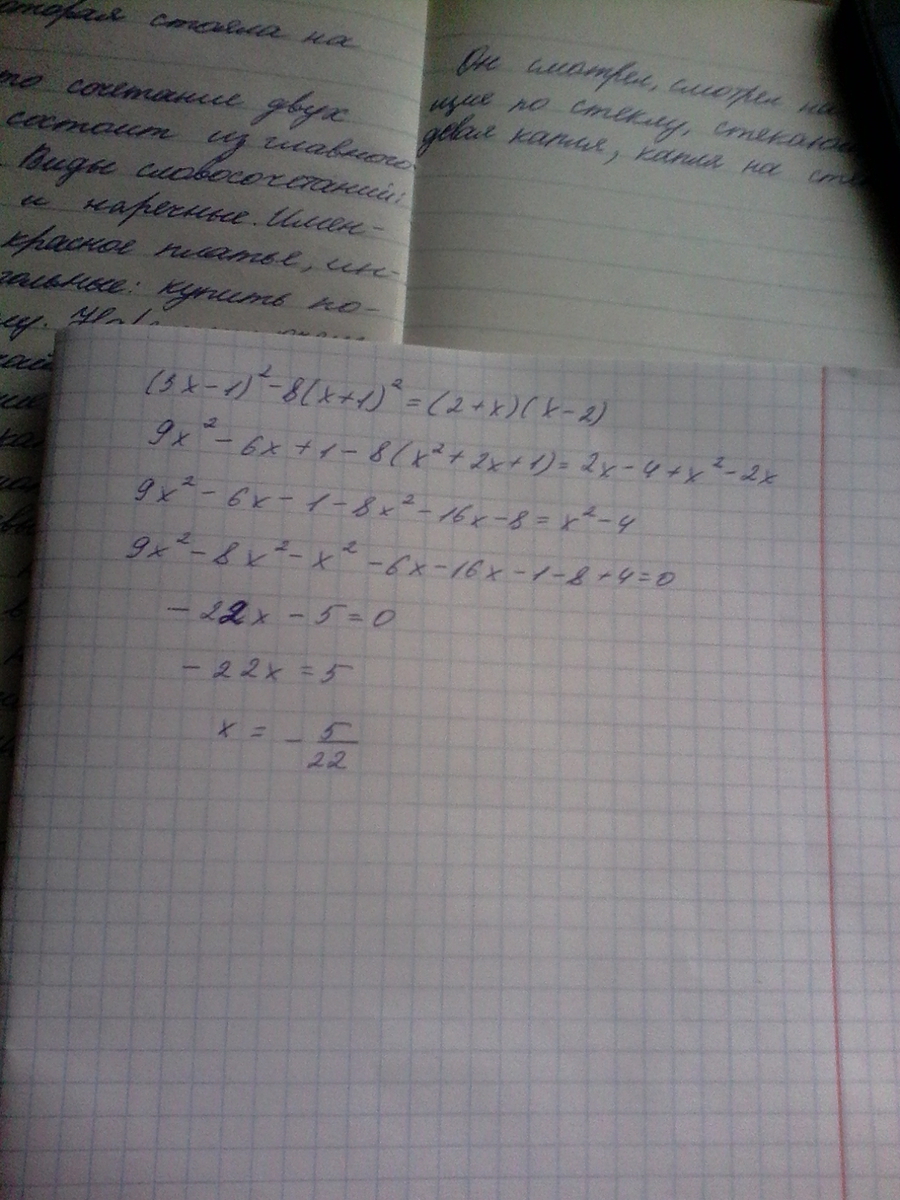 которая стояла на
то сочетание двух
состоит из главного
Виды словосочетаний:
и наречные. Имен-
красное платье, ин-
гольные: купить по-
Он смотрел, смотрел на
щие по стеклу, стекаю
девая капля, капля на сте
(3x-1)²-8(x+1)²=(2+x)(x-2)
9x²-6x+1-8(x²+2x+1)=2x-4+x²-2x
9x²-6x-1-8x²-16x-8=x²-4
9x²-8x²-x²-6x-16x-1-8+4=0
-22x-5=0
-22x=5
x=-5/22